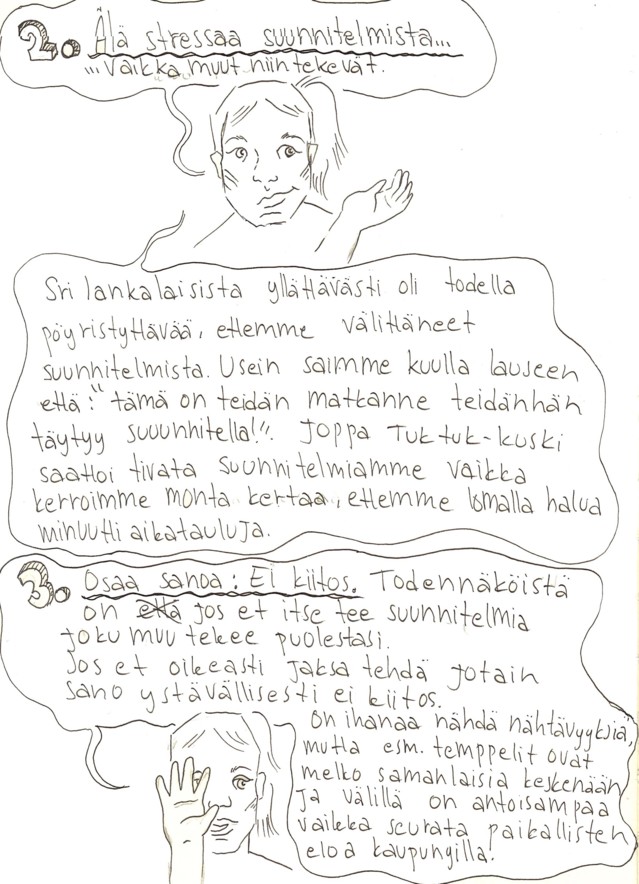 2. Älä stressaa suunnitelmista...
... vaikka muut niin tekevät.
Sri lankalaisista yllättävästi oli todella
pöyristyttävää, ettemme välittäneet
suunnitelmista. Usein saimme kuulla lauseen
että: "tämä on teidän matkanne teidänhän
täytyy suuunnitella!". Joppa Tuktuk-kuski
saattoi tivata suunnitelmiamme vaikka
kerroimme monta kertaa, ettemme lomalla halua
minuutti aikatauluja.
3. Osaa sanoa: Ei kiitos. Todennäköistä
on että jos et itse tee suunnitelmia
joku muu tekee puolestasi.
Jos et oikeasti jaksa tehdä jotain
sano ystävällisesti ei kiitos.
On ihanaa nähdä nähtävyyksiä,
mutta esm. temppelit ovat
melko samanlaisia keskenään
ja välillä on antoisampaa
vaikka seurata paikallisten
eloa kaupungilla.